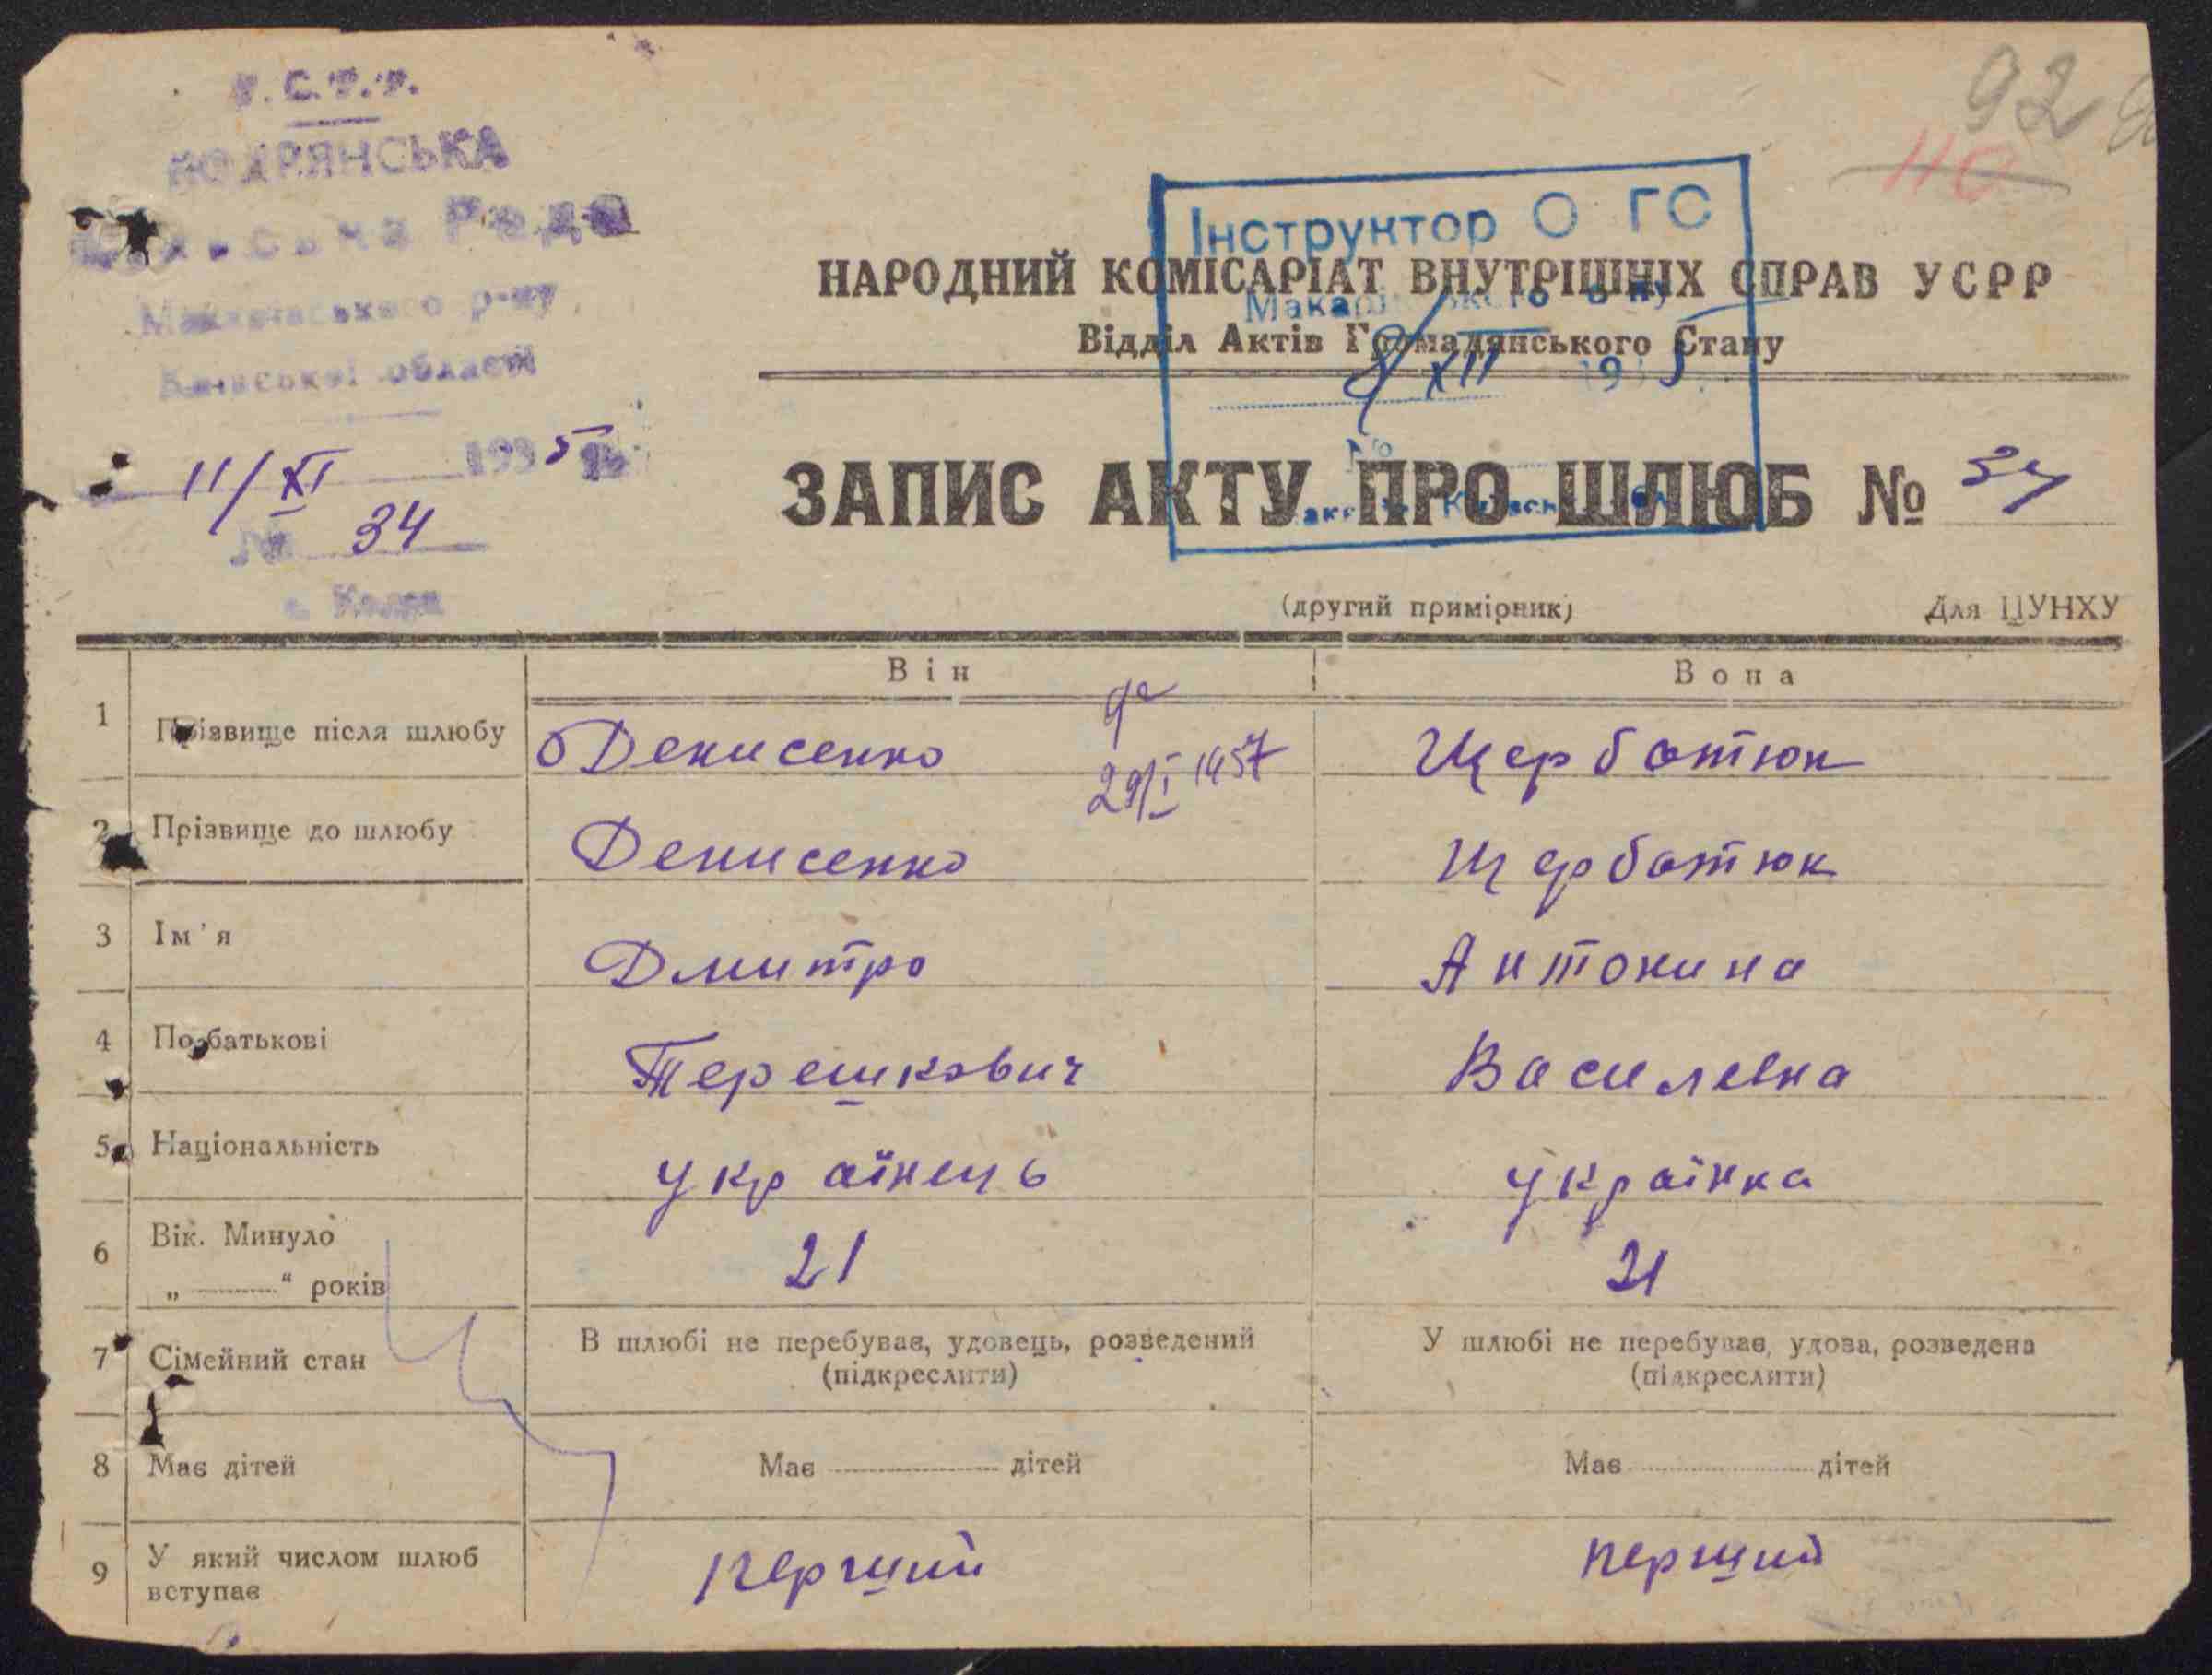 92
110
Рада
р-ну
області
11/XI 1935
№ 34
Інструктор О ГС
НАРОДНИЙ КОМІСАРІАТ ВНУТРІШНІХ СПРАВ УСРР
Відділ Актів Громадянського Стану
XII 193
ЗАПИС АКТУ ПРО ШЛЮБ № 34
(другий примірник) Для ЦУНХУ
Він Вона
1 Прізвище після шлюбу Денисенко 29/I 1957 Щербатюк
2 Прізвище до шлюбу Денисенко Щербатюк
3 Ім'я Дмитро Антонина
4 По батькові Терешкович Василевна
5 Національність українець українка
6 Вік. Минуло
„ “ років 21 21
7 Сімейний стан В шлюбі не перебував, удовець, розведений У шлюбі не перебував, удова, розведена
(підкреслити) (підкреслити)
8 Має дітей Має дітей Має дітей
9 У який числом шлюб
вступає перший перший